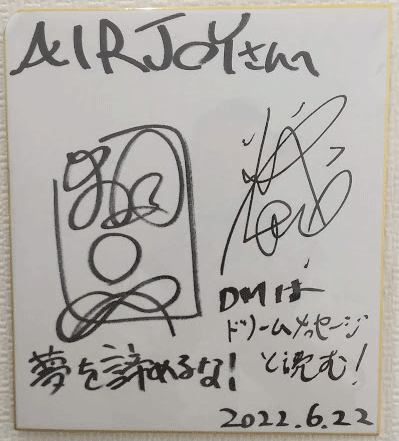 AIRJOYさんへ
DMは
ドリームメッセージ
と読む!
夢を諦めるな!
2022.6.22